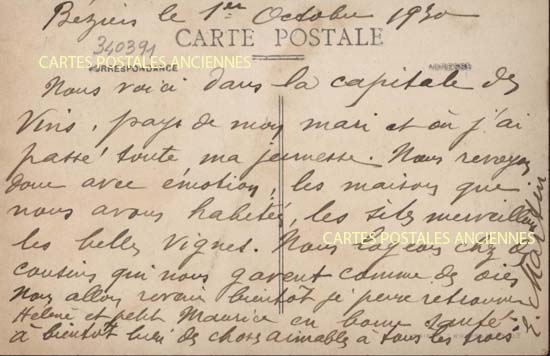 Béziers le 1er Octobre 1930
340391
CARTE POSTALE
CARTES POSTALES ANCIENNES
CORRESPONDANCE
Nous voici dans la capitale des
Vins, pays de mon mari et où j'ai
passé toute ma jeunesse. Nous revoyons
donc avec émotion, les maisons que
nous avons habitées, les sites merveilleux
les belles vignes. Nous logeons chez des
CARTES POSTALES ANCIENNES
cousins qui nous gavent comme des oies
Nous allons revenir bientôt je pense retrouver
Helene et petit Maurice en bonne santé.
à bientôt bien des choses aimables à tous les trois.